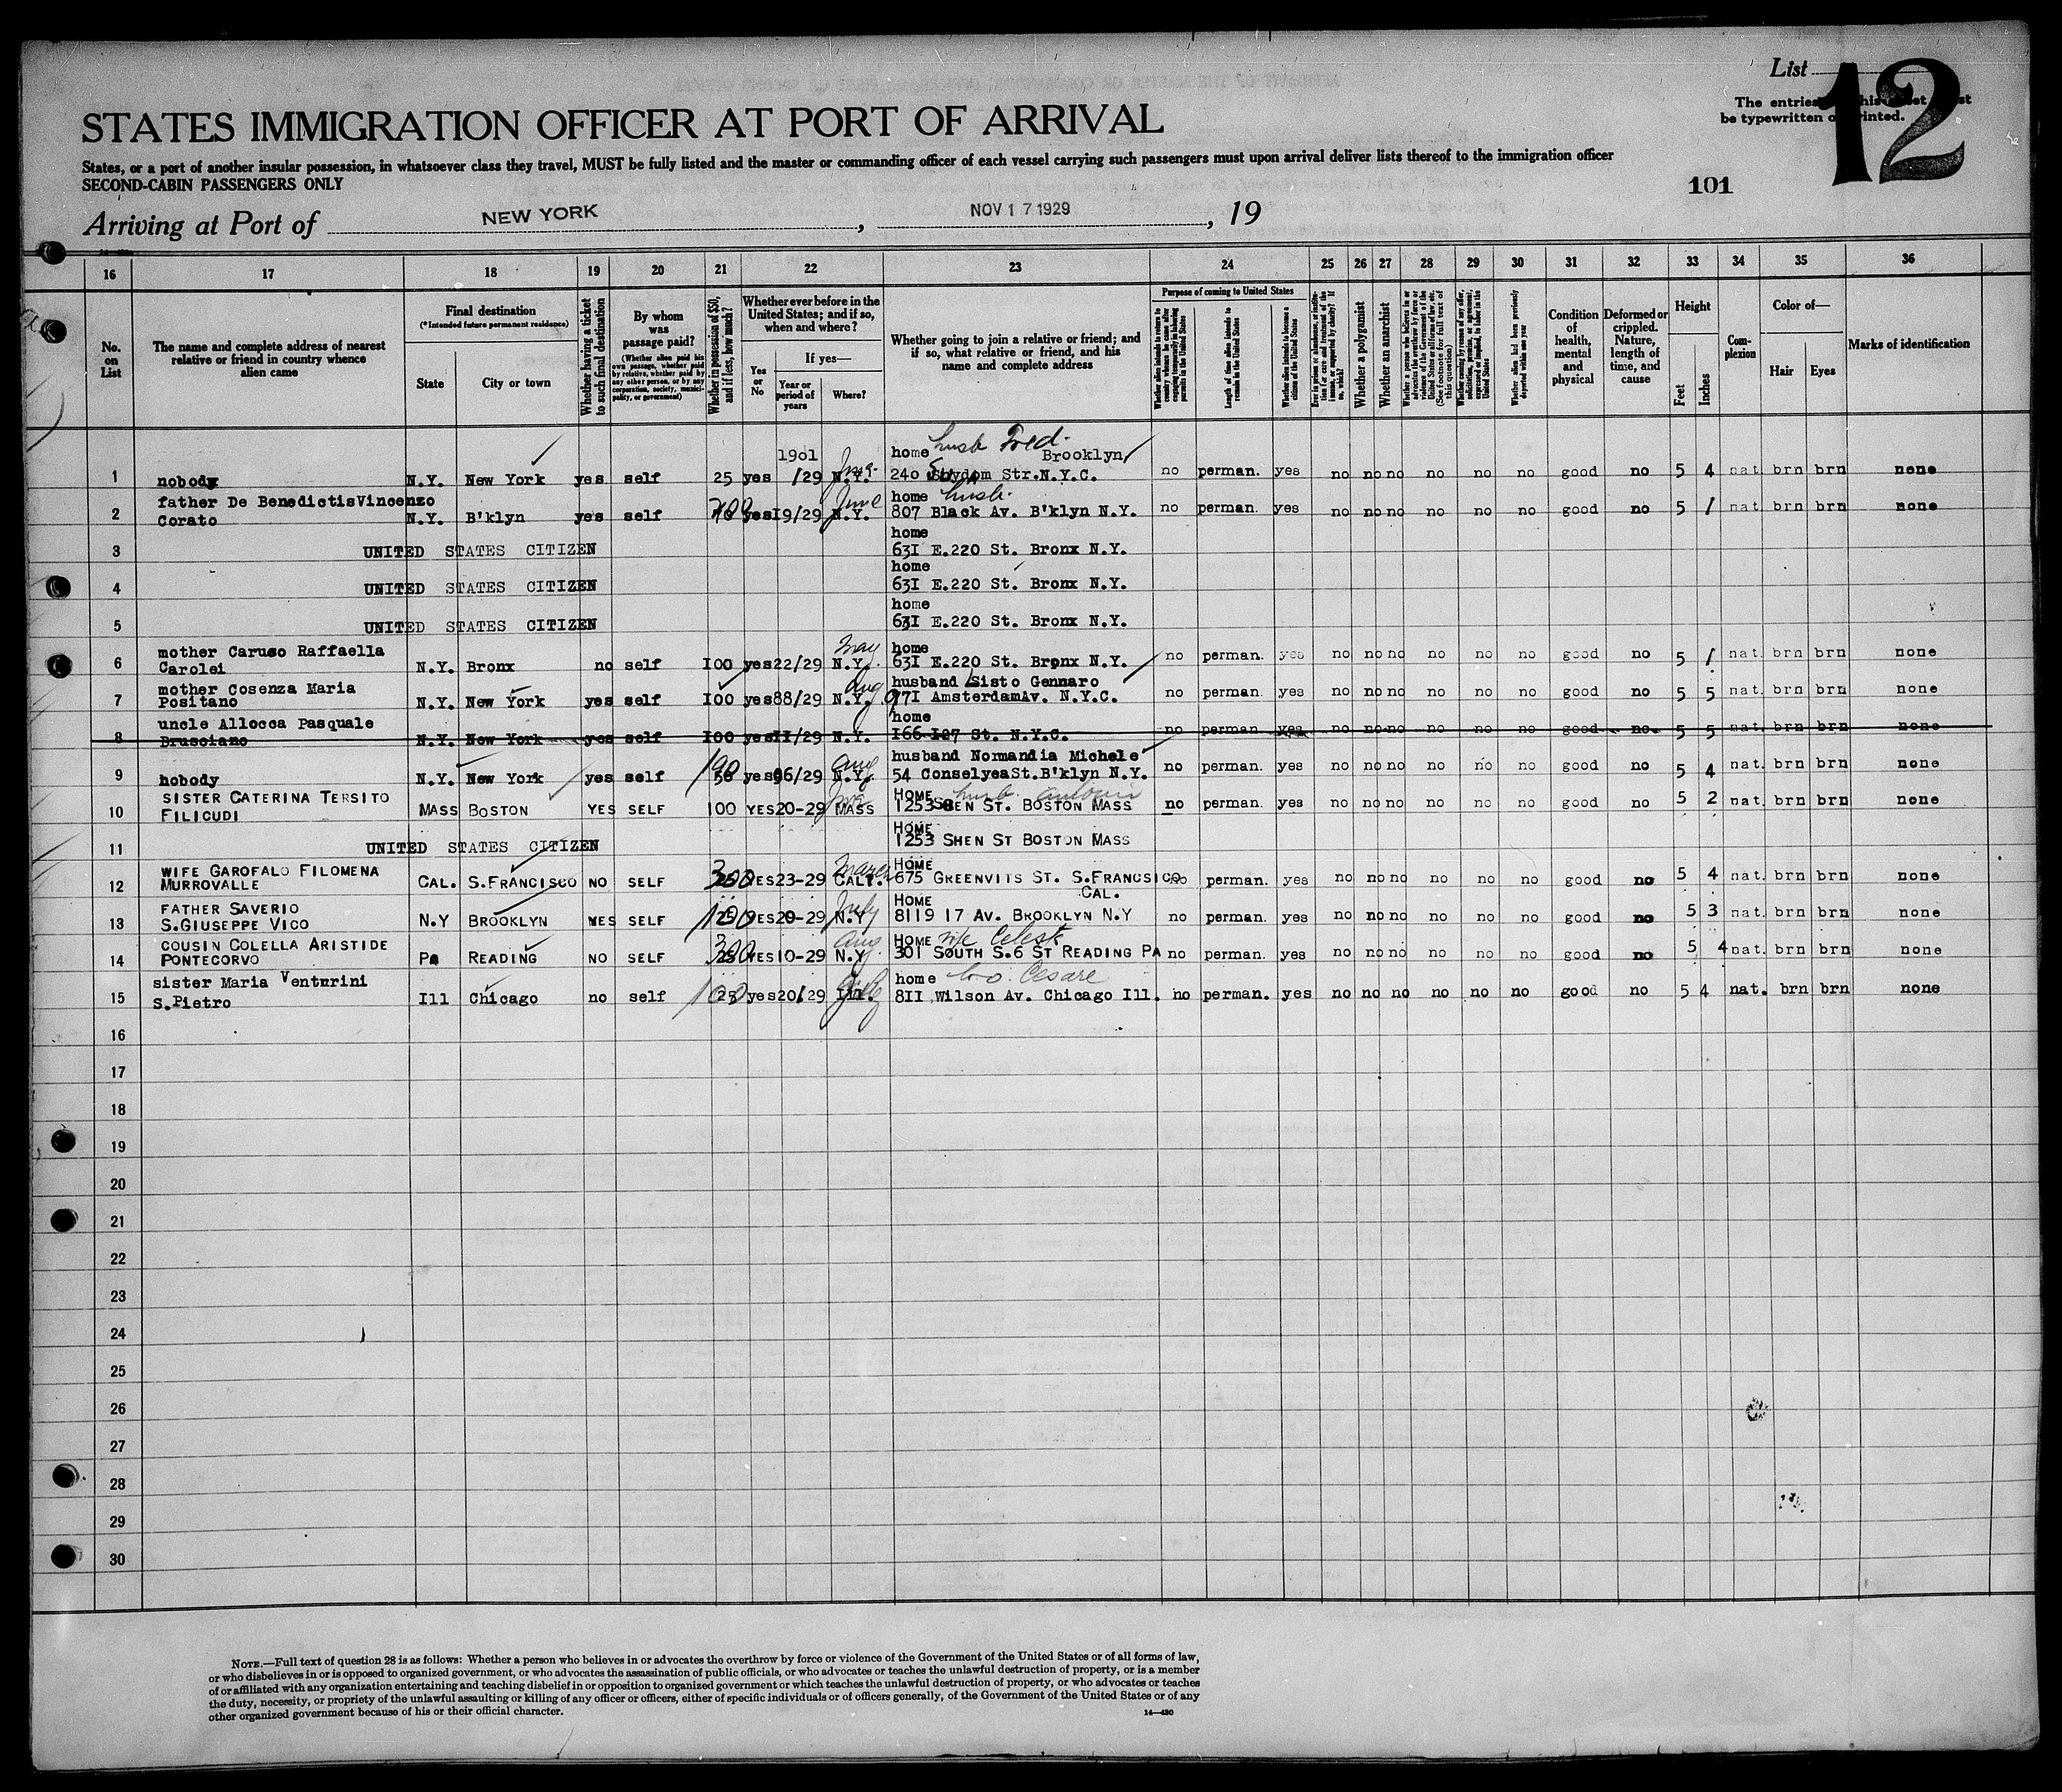 List 12
The entries
be typewritten or printed.
STATES IMMIGRATION OFFICER AT PORT OF ARRIVAL
States, or a port of another insular possession, in whatsoever class they travel, MUST be fully listed and the master or commanding officer of each vessel carrying such passengers must upon arrival deliver lists thereof to the immigration officer
SECOND-CABIN PASSENGERS ONLY
101
Arriving at Port of NEW YORK, NOV 17 1929, 19
16 17 18 19 20 21 22 23 24 25 26 27 28 29 30 31 32 33 34 35 36
No. on List
The name and complete address of nearest relative or friend in country whence alien came
Final destination
(*Intended future permanent residence)
State
City or town
Whether having a ticket to such final destination
By whom was passage paid?
(Whether alien paid his own passage, whether paid by relative, whether paid by any other person, or by any corporation, society, municipality, or government)
Whether in possession of $50, and if less, how much?
Whether ever before in the United States; and if so, when and where?
Yes or No
If yes—
Year or period of years
Where?
Whether going to join a relative or friend; and if so, what relative or friend, and his name and complete address
Purpose of coming to United States
Length of time alien intends to remain in the United States
Whether alien intends to become a citizen of the United States
Whether a polygamist
Whether an anarchist
Whether alien had been previously deported within one year
Condition of health, mental and physical
Deformed or crippled. Nature, length of time, and cause
Height
Feet
Inches
Complexion
Color of—
Hair
Eyes
Marks of identification
1901 home husb Fred. Brooklyn
1 nobody N.Y. New York yes self 25 yes /29 N.Y. 240 Str. N.Y.C. no perman. yes no no no no no no good no 5 4 nat. brn brn none
father De Benedictis Vincenzo June home husb.
2 Corato N.Y. B'klyn yes self yes I9/29 N.Y. 807 Black Av. B'klyn N.Y. no perman. yes no no no no no no good no 5 1 nat. brn brn none
home
3 UNITED STATES CITIZEN 63I E.220 St. Bronx N.Y.
home
4 UNITED STATES CITIZEN 63I E.220 St. Bronx N.Y.
home
5 UNITED STATES CITIZEN 63I E.220 St. Bronx N.Y.
mother Caruso Raffaella May home
6 Carolei N.Y. Bronx no self I00 yes 22/29 N.Y. 63I E.220 St. Bronx N.Y. no perman. yes no no no no no no good no 5 1 nat. brn brn none
mother Cosenza Maria Aug husband Sisto Gennaro
7 Positano N.Y. New York yes self I00 yes 88/29 N.Y. 97I Amsterdam Av. N.Y.C. no perman. yes no no no no no no good no 5 5 nat. brn brn none
uncle Allocca Pasquale home
8 Brusciano N.Y. New York yes self I00 yes II/29 N.Y. I66 I27 St. N.Y.C. no perman. yes no no no no no no good no 5 5 nat. brn brn none
Aug husband Normandia Michele
9 nobody N.Y. New York yes self 50 yes 06/29 N.Y. 54 Conselyea St. B'klyn N.Y. no perman. yes no no no no no no good no 5 4 nat. brn brn none
SISTER CATERINA TERSITO HOME husb.
10 FILICUDI MASS BOSTON YES SELF 100 YES 20-29 MASS 1253 SHEN ST. BOSTON MASS no perman. yes no no no no no no good no 5 2 nat. brn brn none
HOME
11 UNITED STATES CITIZEN 1253 SHEN ST BOSTON MASS
WIFE GAROFALO FILOMENA HOME
12 MURROVALLE CAL. S.FRANCISCO NO SELF 300 YES 23-29 CAL. 675 GREENVITS ST. S.FRANCSICO CAL. no perman. yes no no no no no no good no 5 4 nat. brn brn none
FATHER SAVERIO July HOME
13 S.GIUSEPPE VICO N.Y BROOKLYN YES SELF YES 20-29 N.Y 8119 17 AV. BROOKLYN N.Y no perman. yes no no no no no no good no 5 3 nat. brn brn none
COUSIN COLELLA ARISTIDE Aug HOME wife Celeste
14 PONTECORVO PA READING NO SELF 300 YES 10-29 N.Y 301 SOUTH S.6 ST READING PA no perman. yes no no no no no no good no 5 4 nat. brn brn none
sister Maria Venturini July home Cesare
15 S.Pietro Ill Chicago no self 25 yes 20/29 Ill. 8II Wilson Av. Chicago Ill. no perman. yes no no no no no no good no 5 4 nat. brn brn none
16
17
18
19
20
21
22
23
24
25
26
27
28
29
30
NOTE.—Full text of question 28 is as follows: Whether a person who believes in or advocates the overthrow by force or violence of the Government of the United States or of all forms of law,
or who disbelieves in or is opposed to organized government, or who advocates the assassination of public officials, or who advocates or teaches the unlawful destruction of property, or is a member
of or affiliated with any organization entertaining and teaching disbelief in or opposition to organized government or which teaches the unlawful destruction of property, or who advocates or teaches
the duty, necessity, or propriety of the unlawful assaulting or killing of any officer or officers, either of specific individuals or of officers generally, of the Government of the United States or of any
other organized government because of his or their official character.
14—430